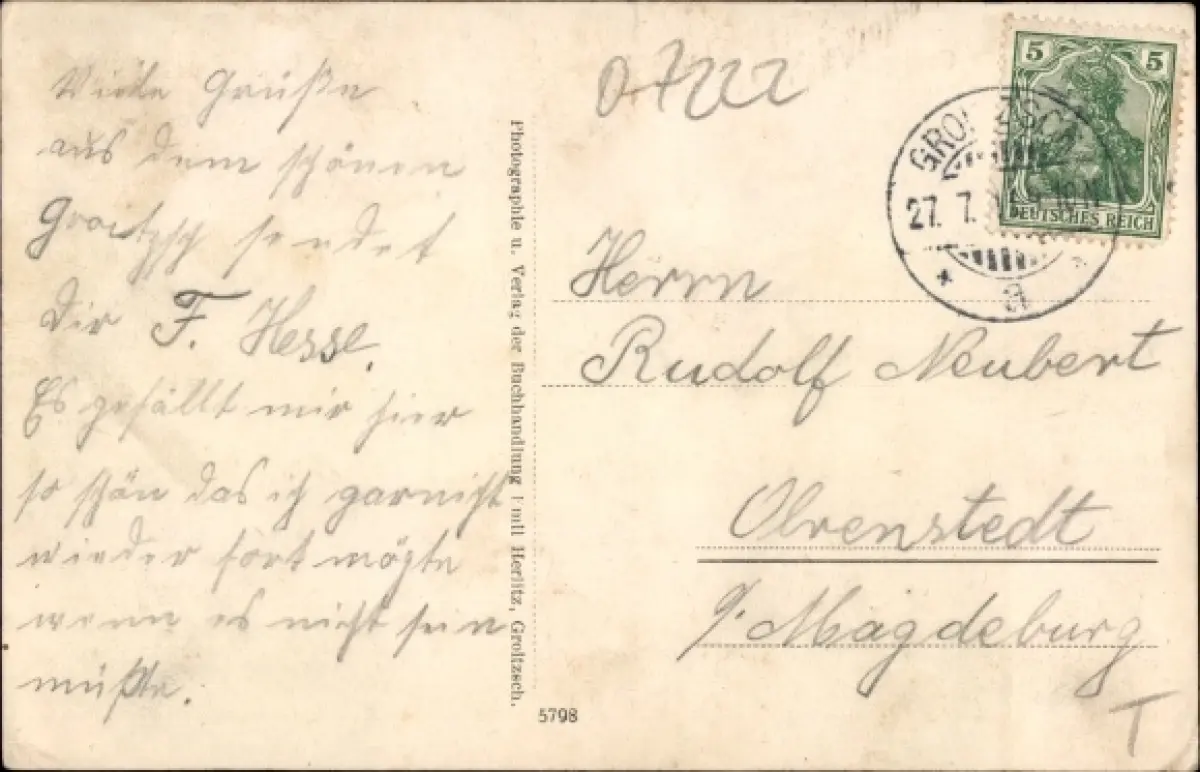 Viele Grüße
aus dem schönen
Groitzsch sendet
Dir F. Hesse.
Es gefällt mir hier
so schön das ich garnicht
wieder fort mögte
wenn es nicht sein
müßte.
Photographie u. Verlag der Buchhandlung Emil Herlitz, Groitzsch.
5798
O-7222
5 5
DEUTSCHES REICH
27. 7.
a
Herrn
Rudolf Neubert
Olvenstedt
b/ Magdeburg
T